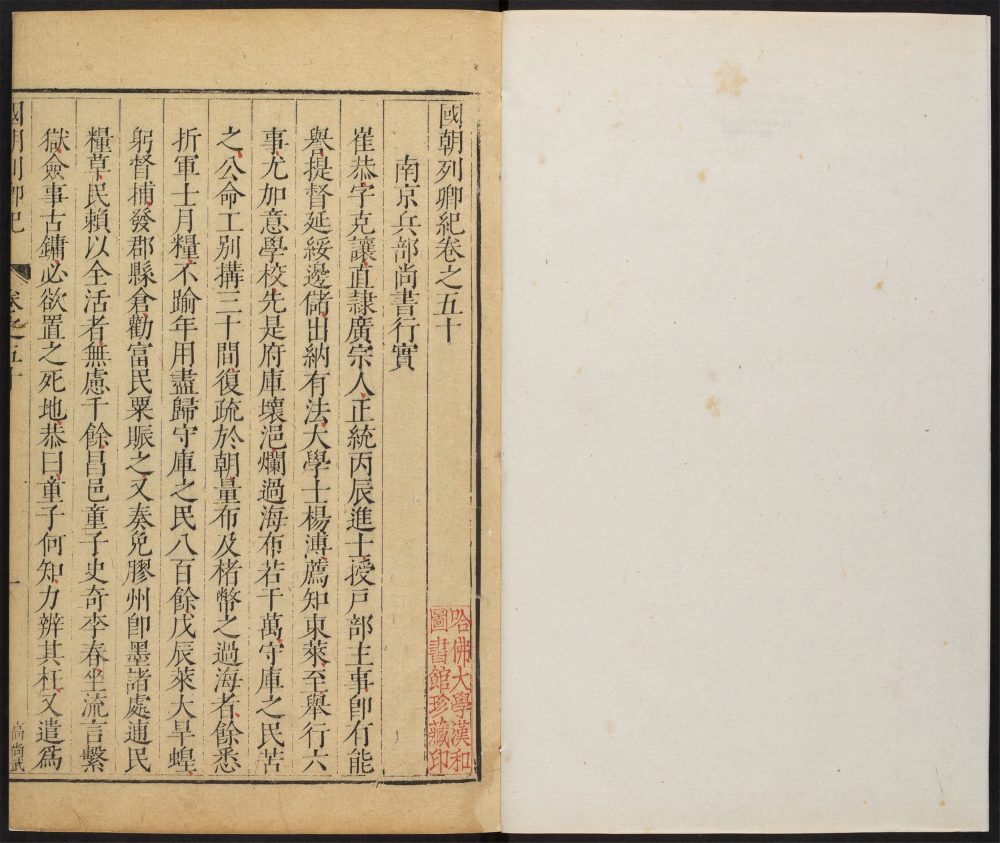 國朝列卿紀卷之五十
南京兵部尚書行實
崔恭字克讓直隷廣宗人正統丙辰進士授戸部主事卽有能
譽提督延綏邊儲出納有法大學士楊溥薦知東萊至舉行六
事尤加意學校先是府庫壞浥爛過海布若干萬守庫之民苦
之公命工别搆三十間復疏於朝量布及楮幣之過海者餘悉
折軍士月糧不踰年用盡歸守庫之民八百餘戊辰萊大旱蝗
躬督捕發郡縣倉勸富民粟賑之又奏免膠州卽墨諸處逋民
糧草民賴以全活者無慮千餘昌邑童子史奇李春坐流言繫
獄僉事古鏞必欲置之死地恭曰童子何知力辨其枉又遣爲
國朝列卿紀
卷之五十
一
高尚武
哈佛大學漢和
圖書館珍藏印